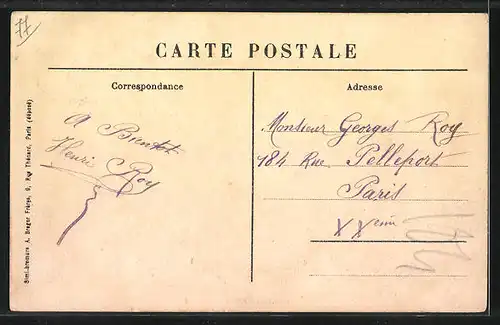 77
CARTE POSTALE
Correspondance
A Bientot
Henri Roy
Adresse
Monsieur Georges Roy
184 Rue Pelleport
Paris
XXème
Simi-bromure A. Breger Frères, 9, Rue Thénard, Paris (déposé)